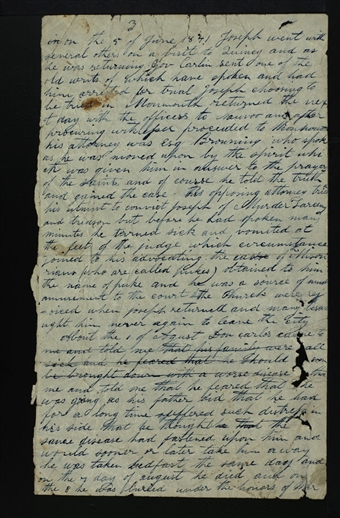 3
on the 5 of June 1841 Joseph went with
several others on a visit to Quincy and as
he was returning Gov Carlin sent one of the
old writs of which have spoken and had
him arrested for trial Joseph choosing to
be tried in Monmouth returned the nex
t day with the officers to Nauvoo and after
procuring witnesses proceeded to Monmouth
his attorney was Esq Browning who spok
as he was moved upon by the spirit whi
ch was given him in answer to the prayer
of the saints and of course he told the truth
and gained the case his opposing attorney tried
his utmost to convict Joseph of Murder Larceny
and treason but before he had spoken many
minutes he turned sick and vomited at
the feet of the judge which circumstance
joined to his advocating the case of the Misou
rians who are called pukes) obtained to him
the name of puke and he was a source of
amusement to the court the Church were re
joiced when Joseph returned and many
him never again to leave the City
about the 1 of August Don carlos came to
me and told me that his family were all
sick and he feared that he should
be brought down with a worse disease
me and told me that he feared that he
was going as his father did that he had
for a long time suffered such distress in
his side that he thought that the
same disease had fastened upon him and
would sooner or later take him away
he was taken bedfast the same day and
on the 7 day of august he died and on
the he was buried under the honors of war